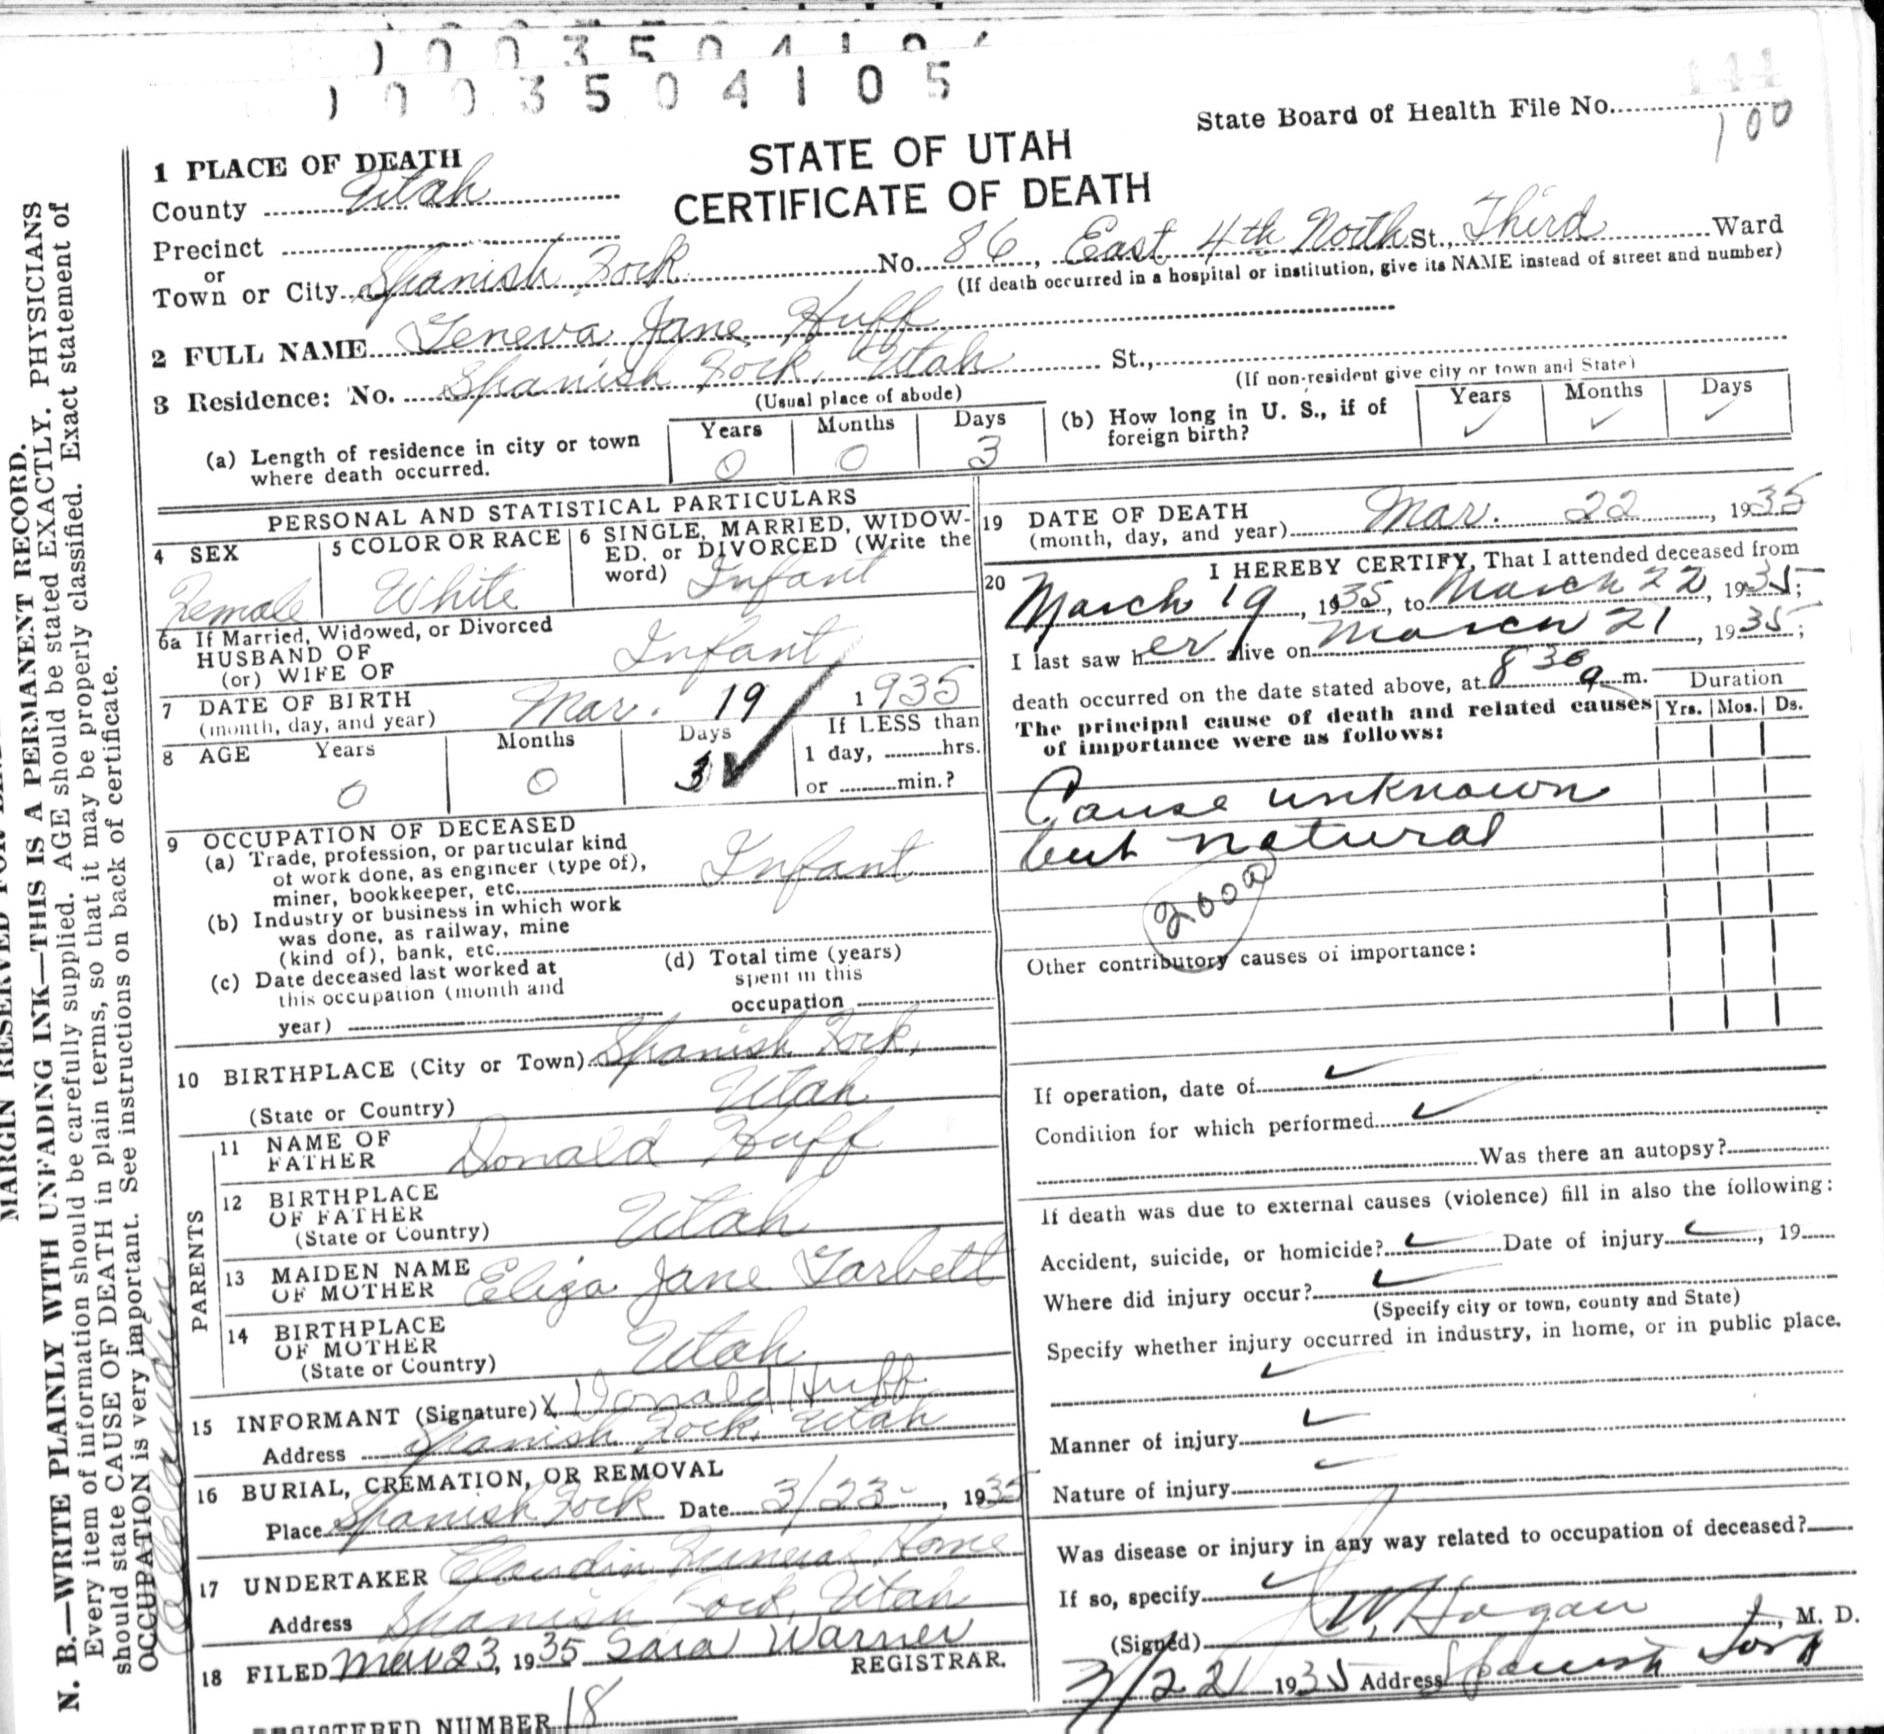 1003504105
State Board of Health File No.
144
100
STATE OF UTAH
CERTIFICATE OF DEATH
1 PLACE OF DEATH
County Utah
Precinct
or
Town or City Spanish Fork No. 86, East 4th North St., Third Ward
(If death occurred in a hospital or institution, give its NAME instead of street and number)
2 FULL NAME Teneva Jane Huff
3 Residence: No. Spanish Fork, Utah St.,
(Usual place of abode) (If non-resident give city or town and State)
(a) Length of residence in city or town where death occurred. Years 0 Months 0 Days 3
(b) How long in U. S., if of foreign birth? Years ✓ Months ✓ Days ✓
PERSONAL AND STATISTICAL PARTICULARS
4 SEX Female
5 COLOR OR RACE White
6 SINGLE, MARRIED, WIDOW-
ED. or DIVORCED (Write the
word) Infant
6a If Married, Widowed, or Divorced
HUSBAND OF
(or) WIFE OF Infant
7 DATE OF BIRTH
(month, day, and year) Mar. 19 1935
8 AGE Years 0 Months 0 Days 3 ✓
If LESS than
1 day, hrs.
or min.?
9 OCCUPATION OF DECEASED
(a) Trade, profession, or particular kind
of work done, as engineer (type of),
miner, bookkeeper, etc. Infant
(b) Industry or business in which work
was done, as railway, mine
(kind of), bank, etc.
(c) Date deceased last worked at
this occupation (month and
year)
(d) Total time (years)
spent in this
occupation
10 BIRTHPLACE (City or Town) Spanish Fork,
(State or Country) Utah
PARENTS
11 NAME OF
FATHER Donald Huff
12 BIRTHPLACE
OF FATHER
(State or Country) Utah
13 MAIDEN NAME
OF MOTHER Eliza Jane Tarbett
14 BIRTHPLACE
OF MOTHER
(State or Country) Utah
15 INFORMANT (Signature) X Donald Huff
Address Spanish Fork, Utah
16 BURIAL, CREMATION, OR REMOVAL
Place Spanish Fork Date 3/23-, 1935
17 UNDERTAKER Claudin Funeral Home
Address Spanish Fork, Utah
18 FILED Mar 23, 1935 Sara Warner
REGISTRAR.
REGISTERED NUMBER 18
19 DATE OF DEATH
(month, day, and year) Mar. 22, 1935
20 I HEREBY CERTIFY, That I attended deceased from
March 19, 1935, to March 22, 1935;
I last saw her alive on March 21, 1935;
death occurred on the date stated above, at 8 30 a m.
The principal cause of death and related causes
of importance were as follows:
Duration
Yrs. Mos. Ds.
Cause unknown
but natural
200a
Other contributory causes of importance:
If operation, date of ✓
Condition for which performed ✓
Was there an autopsy?
If death was due to external causes (violence) fill in also the following:
Accident, suicide, or homicide? ✓ Date of injury ✓, 19
Where did injury occur? ✓
(Specify city or town, county and State)
Specify whether injury occurred in industry, in home, or in public place.
✓
Manner of injury ✓
Nature of injury ✓
Was disease or injury in any way related to occupation of deceased?
If so, specify ✓
(Signed) J W Hagan, M. D.
3/22 1935 Address Spanish Fork
N. B.—WRITE PLAINLY WITH UNFADING INK—THIS IS A PERMANENT RECORD.
Every item of information should be carefully supplied. AGE should be stated EXACTLY. PHYSICIANS
should state CAUSE OF DEATH in plain terms, so that it may be properly classified. Exact statement of
OCCUPATION is very important. See instructions on back of certificate.